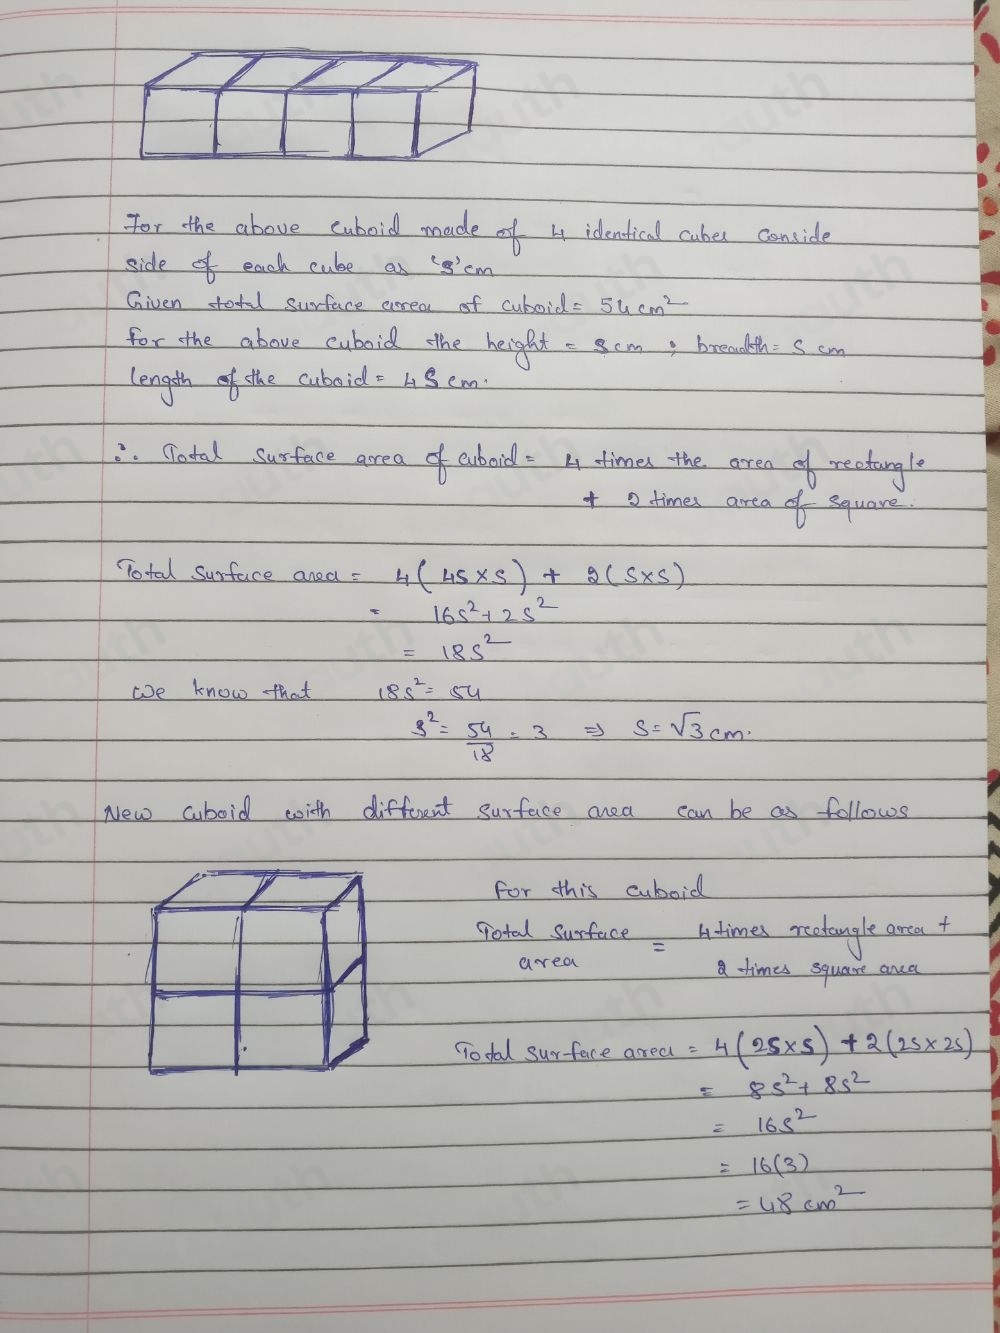 For the above cuboid made of 4 identical cubes conside
side of each cube as 's' cm
Given total surface area of cuboid = 54 cm²
for the above cuboid the height = s cm ; breadth = s cm
length of the cuboid = 4s cm.
∴ Total surface area of cuboid = 4 times the area of rectangle
+ 2 times area of square.
Total surface area = 4(4s×s) + 2(s×s)
= 16s²+2s²
= 18s²
we know that 18s² = 54
s² = 54/18 = 3 ⇒ s = √3 cm.
New cuboid with different surface area can be as follows
for this cuboid
Total surface area = 4 times rectangle area +
2 times square area
Total surface area = 4(2s×s) + 2(2s×2s)
= 8s² + 8s²
= 16s²
= 16(3)
= 48 cm²